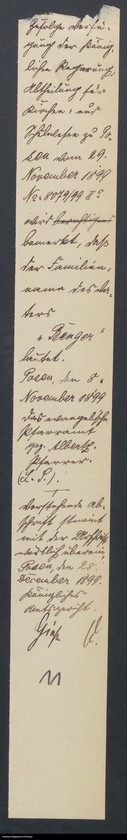 Zufolge Verfü-
gung der König-
lichen Regierung,
Abtheilung für
Kirchen- und
Schulwesen zu Po-
sen vom 29.
November 1899
No: 8079/99 II a
wird berichtigend
bemerkt, daß
der Familien-
name des Va-
ters
"Rünger"
lautet.
Posen, den 8.
November 1899
Das evangelische
Pfarramt
gez. Albertz.
Pfarrer
(L. S.)
Vorstehende Ab-
schrift stimmt
mit der Urschrift
wörtlich überein
Posen, den 28.
Dezember 1899.
Königliches
Amtsgericht.
11